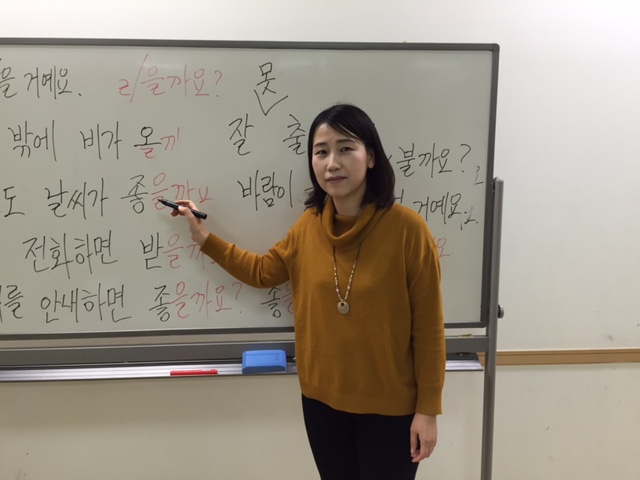 을 거예요. ㄹ/을까요? 못
밖에 비가 올까 잘 출 불까요?
도 날씨가 좋을까요 바람이 거예요.
전화하면 받을까 요
를 안내하면 좋을까요? 좋